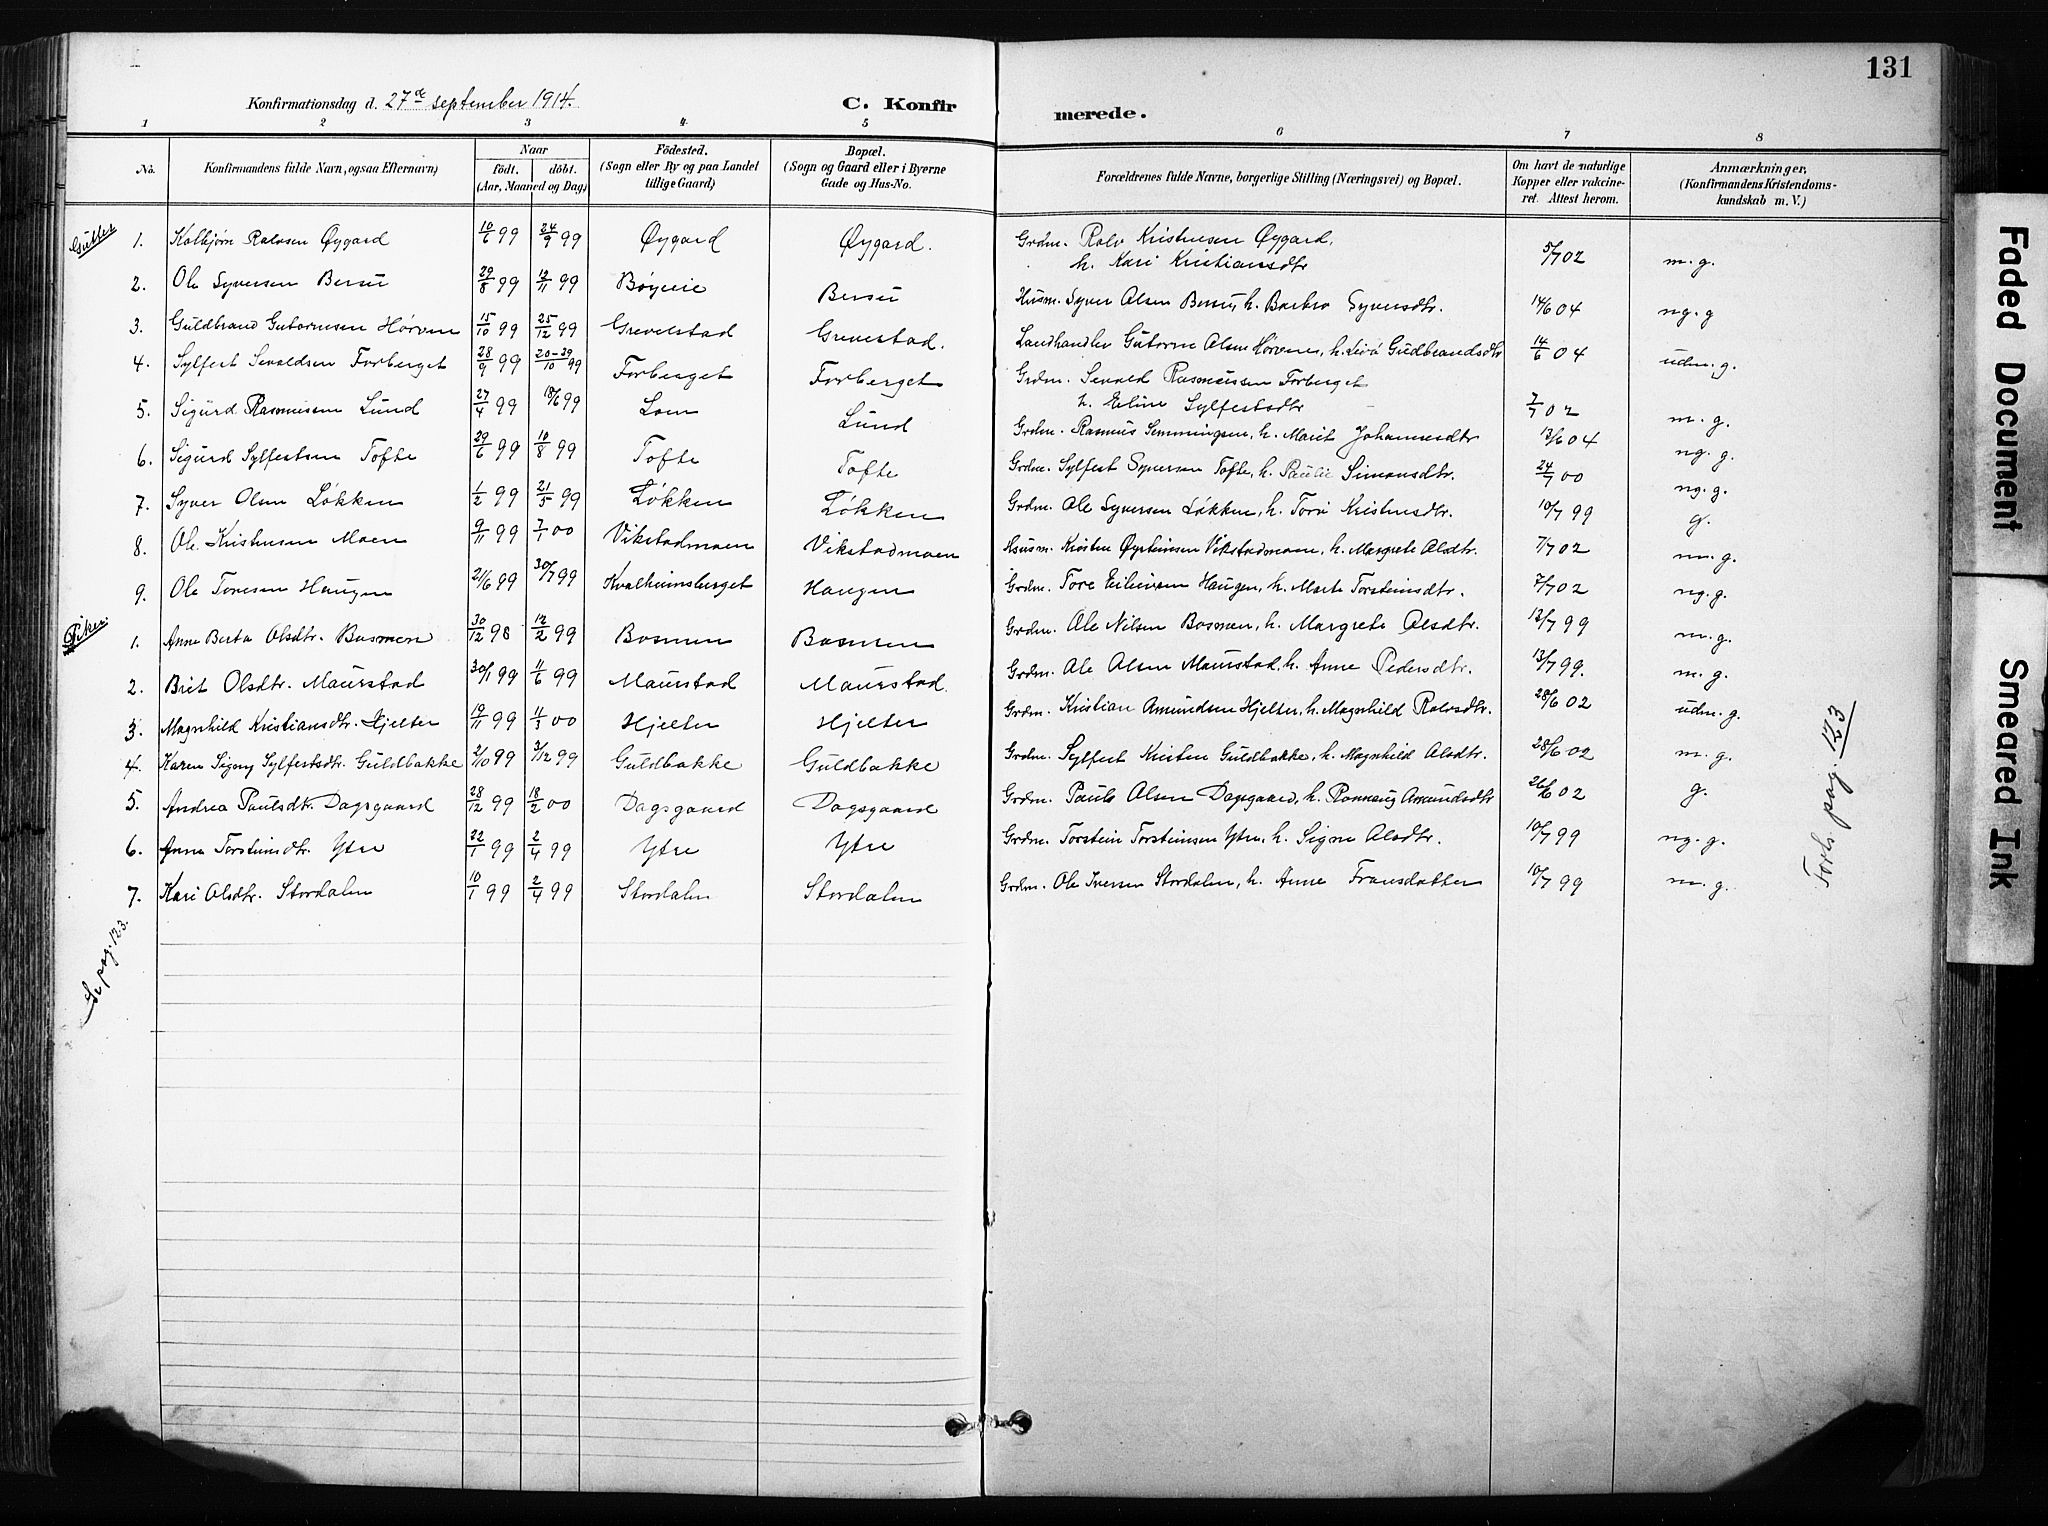 131
Konfirmationsdag d. 27de september 1914.
C. Konfirmerede.
1 2 3 4 5 6 7 8
No.
Konfirmandens fulde Navn, ogsaa Efternavn)
Naar
födt. döbt.
(Aar, Maaned og Dag)
Födested.
(Sogn eller By og paa Landet
tillige Gaard)
Bopæl.
(Sogn og Gaard eller i Byerne
Gade og Hus-No.
Forældrenes fulde Navne, borgerlige Stilling (Næringsvei) og Bopæl.
Om havt de naturlige
Kopper eller vakcine-
ret. Attest herom.
Anmærkninger,
(Konfirmandens Kristendoms-
kundskab m. V.)
Gutter
1. Kolbjørn Rolvsen Øygard 10/6 99 24/9 99 Øygard Øygard. Grdm. Rolv Kristensen Øygard,
h. Kari Kristiansdtr 5/7 02 m. g.
2. Ole Syversen Bersu 29/8 99 12/11 99 Bøyeie Bersu Husm. Syver Olsen Bersu, h. Barbro Syversdtr. 14/6 04 ng. g
3. Guldbrand Gutormsen Hørven 15/10 99 25/12 99 Grevelstad Grevestad. Landhandler Gutorm Olsen Hørven, h. Livø Gudbrandsdtr 14/6 04 udm. g.
4. Sylfest Sevaldsen Forberget 28/9 99 20-29/10 99 Forberget Forberget Grdm. Sevald Rasmussen Forberget
h. Eline Sylfestsdtr 7/7 02 m. g.
5. Sigurd Rasmussen Lund 27/4 99 18/6 99 Lom Lund Grdm. Rasmus Semmingsen, h. Marit Johannesdtr 13/6 04 ng. g.
6. Sigurd Sylfestsen Tofte 29/6 99 10/8 99 Tofte Tofte Grdm. Sylfest Syversen Tofte, h. Paulie Simonsdtr. 24/7 00 ng. g.
7. Syver Olsen Løkken 1/2 99 21/5 99 Løkken Løkken Grdm. Ole Syversen Løkken, h. Toru Kristensdtr. 10/7 99 g.
8. Ole Kristensen Moen 9/11 99 7/1 00 Vikstadmoen Vikstadmoen Husm. Kristen Øysteinsen Vikstadmoen, h. Margrete Olsdtr. 7/7 02 m. g.
9. Ole Toresen Haugen 21/6 99 30/7 99 Kvalheimsberget Haugen Grdm. Tore Eilivsen Haugen, h. Marte Torsteinsdtr. 7/7 02 ng. g.
Piker.
1. Anne Berta Olsdtr. Bosmen 30/12 98 12/2 99 Bosmen Bosmen Grdm. Ole Nilsen Bosmen, h. Margrete Olsdtr. 13/7 99 m. g.
2. Brit Olsdtr. Maurstad 30/1 99 11/6 99 Maurstad Maurstad. Grdm. Ole Olsen Maurstad, h. Anne Pedersdtr. 13/7 99. m. g.
3. Magnhild Kristiansdtr. Hjelter 19/11 99 11/3 00 Hjelter Hjelter Grdm. Kristian Amundsen Hjelter, h. Magnhild Rolvsdtr. 28/6 02 udm. g.
4. Karen Signy Sylfestsdtr. Guldbakke 2/10 99 3/12 99 Guldbakke Guldbakke Grdm. Sylfest Kristen Guldbakke, h. Magnhild Olsdtr. 28/6 02 m. g.
5. Andrea Paulsdtr. Dagsgaard 28/12 99 18/2 00 Dagsgaard Dagsgaard Grdm. Paul Olsen Dagsgaard, h. Ronnaug Amundsdtr 26/6 02 g.
6. Anna Torsteinsdtr. Ytre 22/1 99 2/4 99 Ytre Ytre Grdm. Torstein Torsteinsen Ytre, h. Signe Olsdtr. 10/7 99 ng. g.
7. Kari Olsdtr. Stordalen 10/1 99 2/4 99 Stordalen Stordalen Grdm. Ole Iversen Stordalen, h. Anne Fransdatter 10/7 99 m. g.
Se pag. 123.
Forts. pag. 123
Faded Document
Smeared Ink